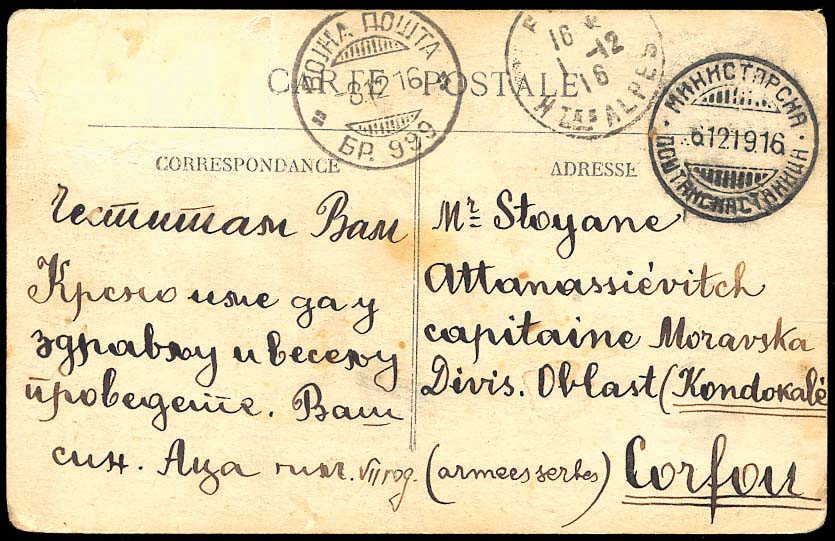 ВОЈНА ПОШТА
8 12 16
БР. 999
16
1 -12
16
HTES ALPES
МИНИСТАРСКА
6.12.1916
ПОШТАНСКА СТАНИЦА
CARTE POSTALE
CORRESPONDANCE
ADRESSE
Честитам Вам
Крсно име да у
здрављу и весељу
проведете. Ваш
син. Аца VII год.
Mr Stoyane
Attanassiévitch
capitaine Moravska
Divis. Oblast (Kondokalé
(armées serbes) Corfou